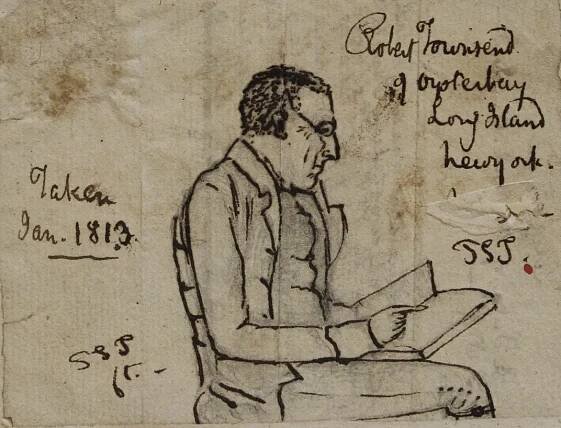 Robert Townsend
of Oysterbay
Long Island
newyork.
Taken
Jan. 1813.